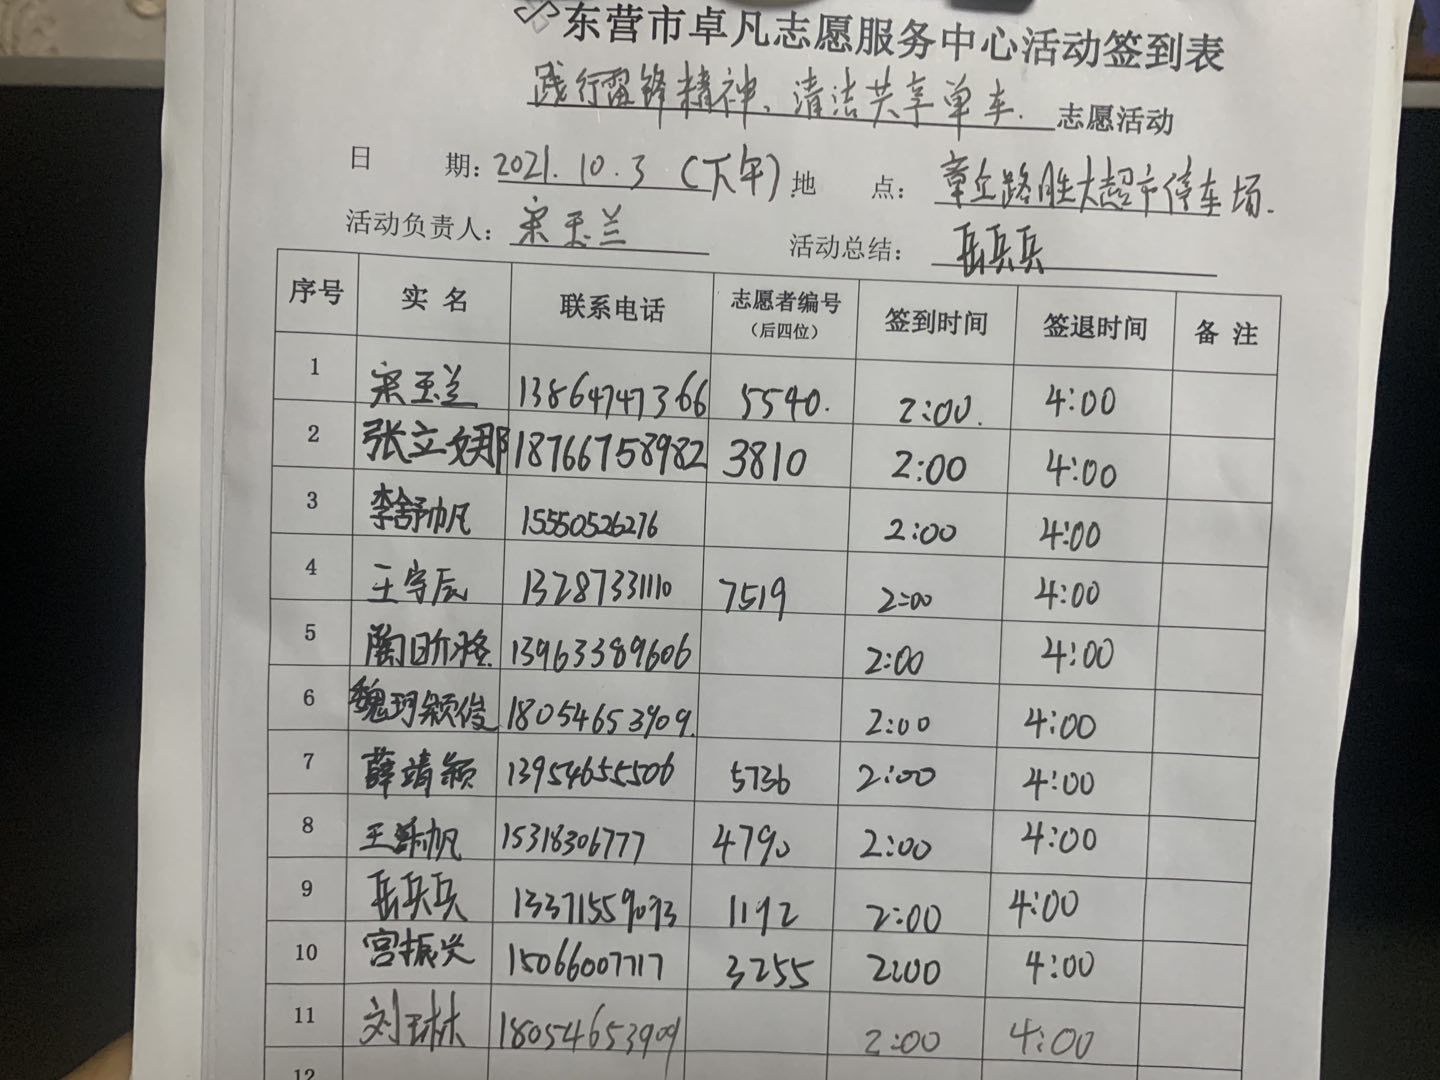 东营市卓凡志愿服务中心活动签到表
践行雷锋精神、清洁共享单车. 志愿活动
日 期: 2021.10.3 (下午) 地 点: 章丘路胜大超市停车场.
活动负责人: 宋玉兰 活动总结: 岳兵兵
序号 实名 联系电话 志愿者编号 (后四位) 签到时间 签退时间 备注
1 宋玉兰 13864747366 5540. 2:00. 4:00
2 张立娜 18766758982 3810 2:00 4:00
3 李舒帆 15550526276 2:00 4:00
4 王宇辰 13287331110 7519 2:00 4:00
5 13963389606 2:00 4:00
6 魏珂颖俊 18054653909. 2:00 4:00
7 薛靖颖 13954655506 5736 2:00 4:00
8 王 帆 15318306777 4790 2:00 4:00
9 岳兵兵 13371559093 1192 2:00 4:00
10 宫振兴 15066007717 3255 2:00 4:00
11 刘琳 18054653909 2:00 4:00
12